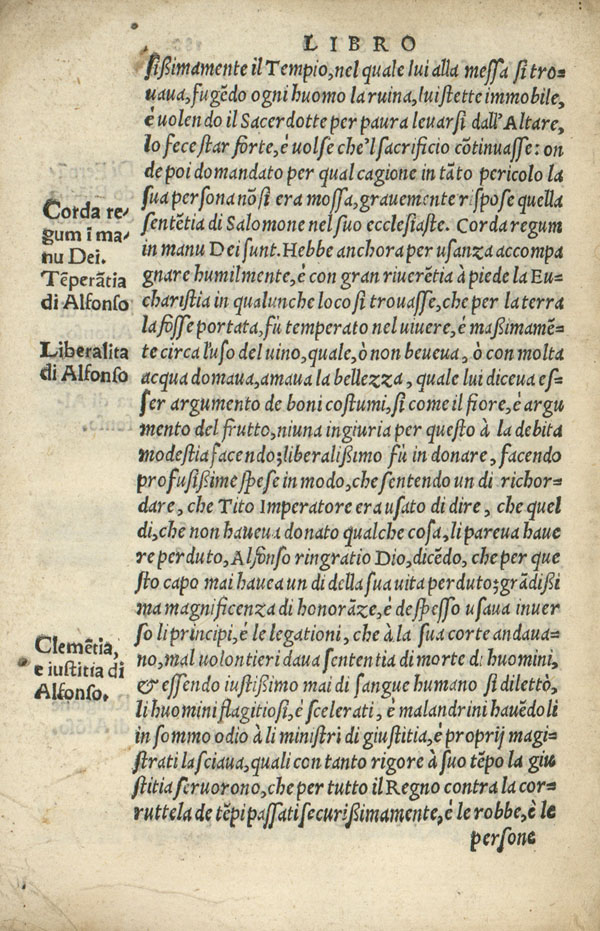 LIBRO
sißimamente il Tempio, nel quale lui alla messa si tro-
vava, fugẽdo ogni huomo la ruina, lui stette immobile,
é volendo il Sacerdotte per paura levarsi dall'Altare,
lo fece star forte, é volse che'l sacrificio cõtinuasse: on
de poi domandato per qual cagione in tãto pericolo la
sua persona nõ si era mossa, gravemente rispose quella
sentẽtia di Salomone nel suo ecclesiaste. Corda regum
in manu Dei sunt. Hebbe anchora per usanza accompa
gnare humilmente, é con gran riverẽtia à piede la Eu-
charistia in qualunche loco si trovasse, che per la terra
la fosse portata, fù temperato nel vivere, é maßimamẽ-
te circa l'uso del vino, quale, ò non beveva, ò con molta
acqua domava, amava la bellezza, quale lui diceva es-
ser argumento de boni costumi, sì come il fiore, é argu
mento del frutto, niuna ingiuria per questo à la debita
modestia facendo; liberalißimo fù in donare, facendo
profusißime spese in modo, che sentendo un di richor-
dare, che Tito Imperatore era usato di dire, che quel
di, che non haveva donato qualche cosa, li pareva have
re perduto, Alfonso ringratio Dio, dicẽdo, che per que
sto capo mai havea un di della sua vita perduto; grãdißi
ma magnificenza di honorãze, é de spesso usava inver
so li principi, é le legationi, che à la sua corte andava-
no, mal volontieri dava sententia di morte di huomini,
& essendo iustißimo mai di sangue humano si dilettò,
li huomini flagitiosi, é scelerati, é malandrini havẽdo li
in sommo odio à li ministri di giustitia, é proprij magi-
strati lasciava, quali con tanto rigore à suo tẽpo la giu
stitia servorono, che per tutto il Regno contra la cor-
ruttela de tẽpi passati securißimamente, é le robbe, é le
persone
Corda re-
gum ĩ ma-
nu Dei.
Tẽperãtia
di Alfonso
Liberalita
di Alfonso
Clemẽtia,
e iustitia di
Alfonso.